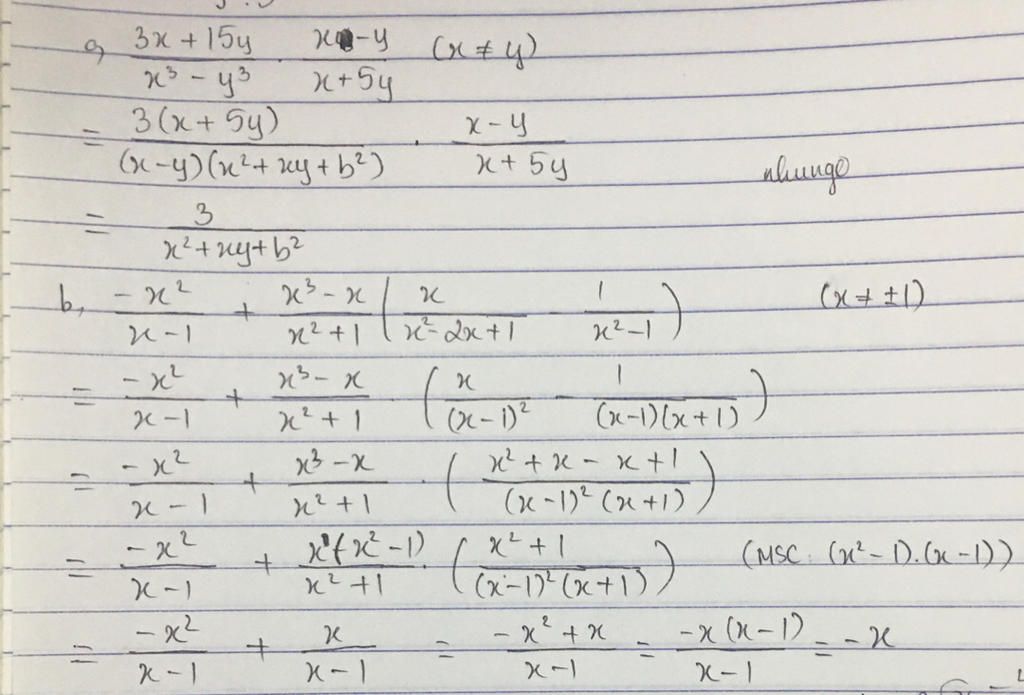 a, (3x + 15y)/(x³ - y³) · (x - y)/(x + 5y) (x ≠ y)
= 3(x + 5y)/((x-y)(x² + xy + b²)) · (x - y)/(x + 5y)
nhungo
= 3/(x² + xy + b²)
b, (-x²)/(x - 1) + (x³ - x)/(x² + 1) (x/(x² - 2x + 1) - 1/(x² - 1)) (x ≠ ±1)
= (-x²)/(x - 1) + (x³ - x)/(x² + 1) · (x/(x - 1)² - 1/((x-1)(x+1)))
= (-x²)/(x - 1) + (x³ - x)/(x² + 1) · ((x² + x - x + 1)/((x-1)² (x+1)))
= (-x²)/(x - 1) + x(x² - 1)/(x² + 1) · ((x² + 1)/((x-1)² (x+1))) (MSC: (x² - 1).(x - 1))
= (-x²)/(x - 1) + x/(x - 1) = (-x² + x)/(x - 1) = (-x(x - 1))/(x - 1) = -x